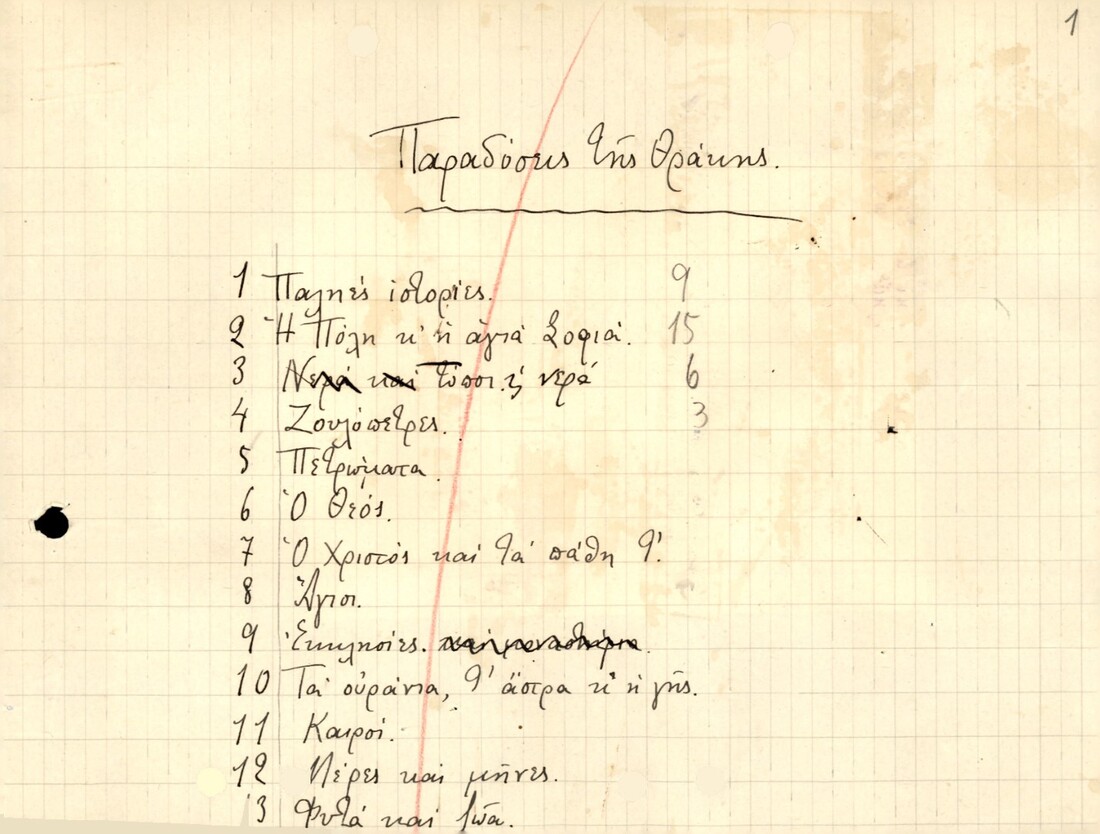 1
Παραδόσεις τῆς Θράκης.
1 Παληές ἱστορίες. 9
2 Ἡ Πόλη κ' ἡ ἁγιά Σοφιά. 15
3 Νερά και Τόποι ἤ νερά 6
4 Ζουλόπετρες. 3
5 Πετρώματα.
6 Ὁ Θεός.
7 Ὁ Χριστός καί τά πάθη τ'.
8 Ἅγιοι.
9 Ἐκκλησίες. και μοναστήρια.
10 Τά οὐράνια, τ' ἄστρα κ' ἡ γῆς.
11 Καιροί.
12 Μέρες καί μῆνες.
13 Φυτά καί ζῶα.